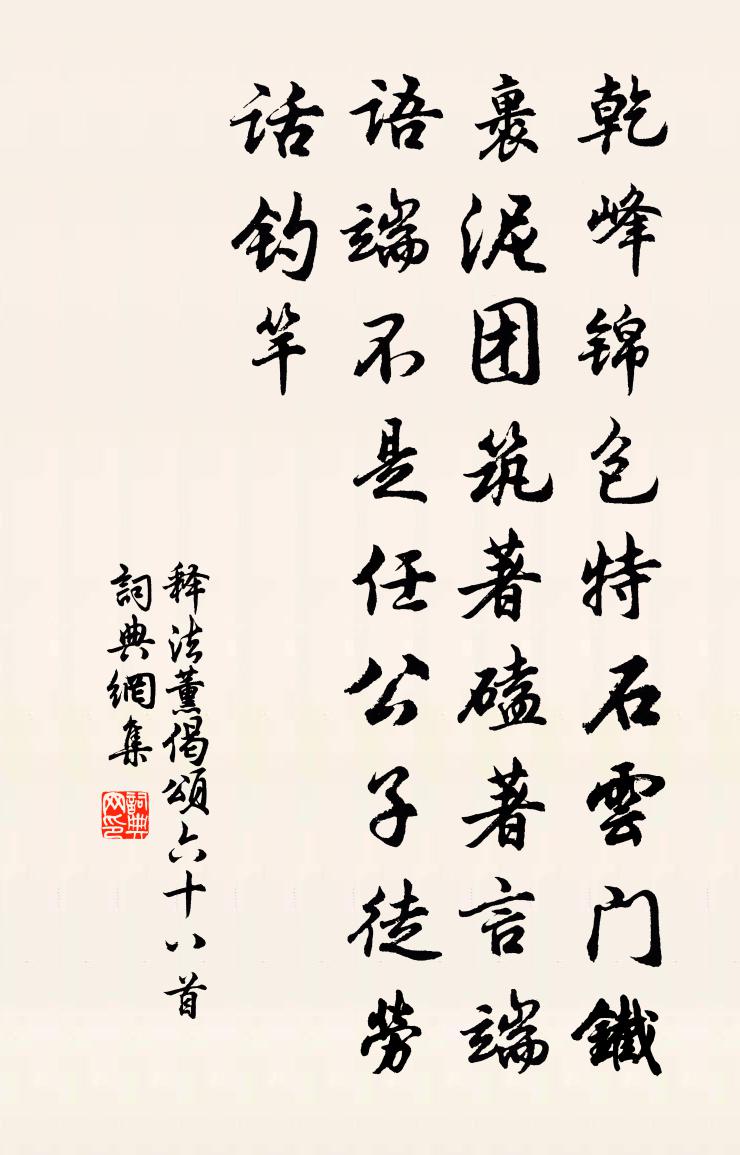 乾峰锦包特石雲门鐵
裹泥团筑著磕著言端
语端不是任公子徒劳
话钓竿
释法薰偈頌六十八首
詞典網集
詞典网印